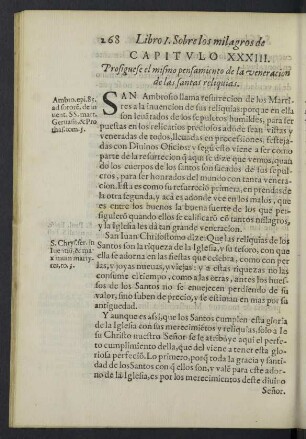 268 Libro I. Sobre los milagros de
CAPITVLO XXXIII.
Prosiguese el mismo pensamiento de la veneracion
de las santas reliquias.
SAN Ambrosio llama resurreccion de los Martires
a la inuencion de sus reliquias: porque en ella
son leuãtrados de los sepulcros humildes, para ser
puestas en los relicarios preciosos adõde sean vistas y
veneradas de todos, lleuadas en processiones, festejadas
con Diuinos Oficios: y segun esto viene a ser como
parte de la resurreccion q̃ aqui se dize que vemos, quando
los cuerpos de los santos son sacados de las sepulcros,
para ser honrados del mundo con tanta veneracion.
Esta es como resurrecciõ primera, en prendas de
la segunda, y así a vezes no es otra cosa, mas de lo que es
entre los buenos la buena suerte de los que persiguiero
quando ellos se calificarõ cõ tantos milagros,
y la Iglesia les dá tan grande veneracion.
San Iuan Christostomo dize: Que las reliquias de los
Santos son la riqueza de la Iglesia, y su tesoro, con que
ella se adorna en las fiestas que celebra, como con perlas,
y joyas nueuas, y viejas: y a estas riquezas no las
consume el tiempo, como a las otras, porque los huessos
de los Santos no se enuejecen perdiendo de su
valor, sino sabe de precio, y se estiman en mas por su
antiguedad.
Y aunque es assi, que los Santos cumplen esta gloria
de la Iglesia con sus merecimiẽtos y reliquias, solo a Iesu
Christo nuestro Señor se le atribuye aqui el perfecto
cumplimiento della, que del viene a tener esta gloriosa
perfeciõ. Lo primero, porq̃ toda la gracia y santidad
de los Santos con q̃ ellos son, y vale para este adorno
de la Iglesia, es por los merecimientos deste diuino
Señor.
Ambro. epi. 85.
ad soror. de inuent.
SS. mart.
Geruasii, & Prothas.
tom. 3.
S. Chrysost. in
Iuuentiũ, & maximum
martyres,
to. 3.